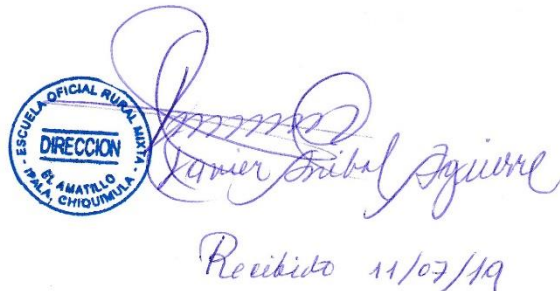 ESCUELA OFICIAL RURAL MIXTA
DIRECCION
EL AMATILLO
IPALA, CHIQUIMULA
Xavier Anibal Aguirre
Recibido 11/07/19